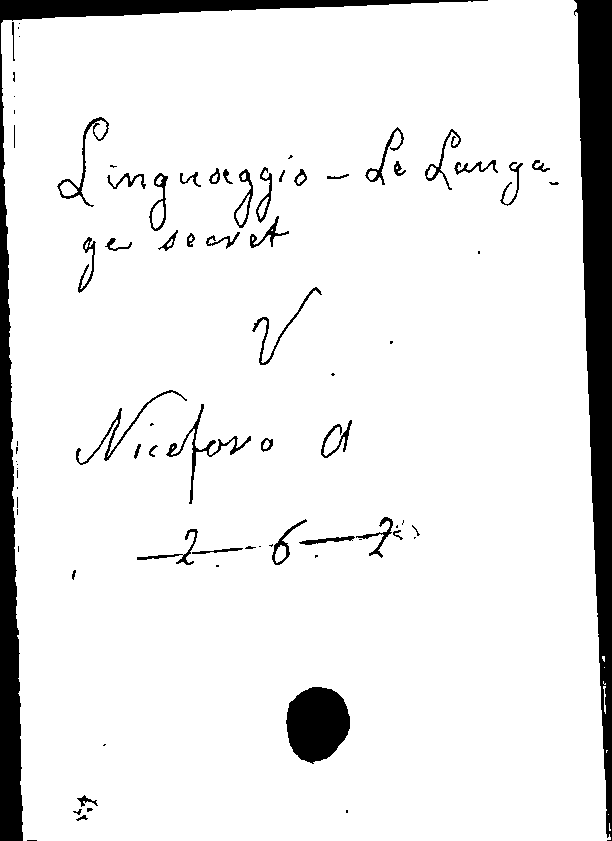 Linguaggio - Le Langa-
ge secret
V
Niceforo A
2-6-2